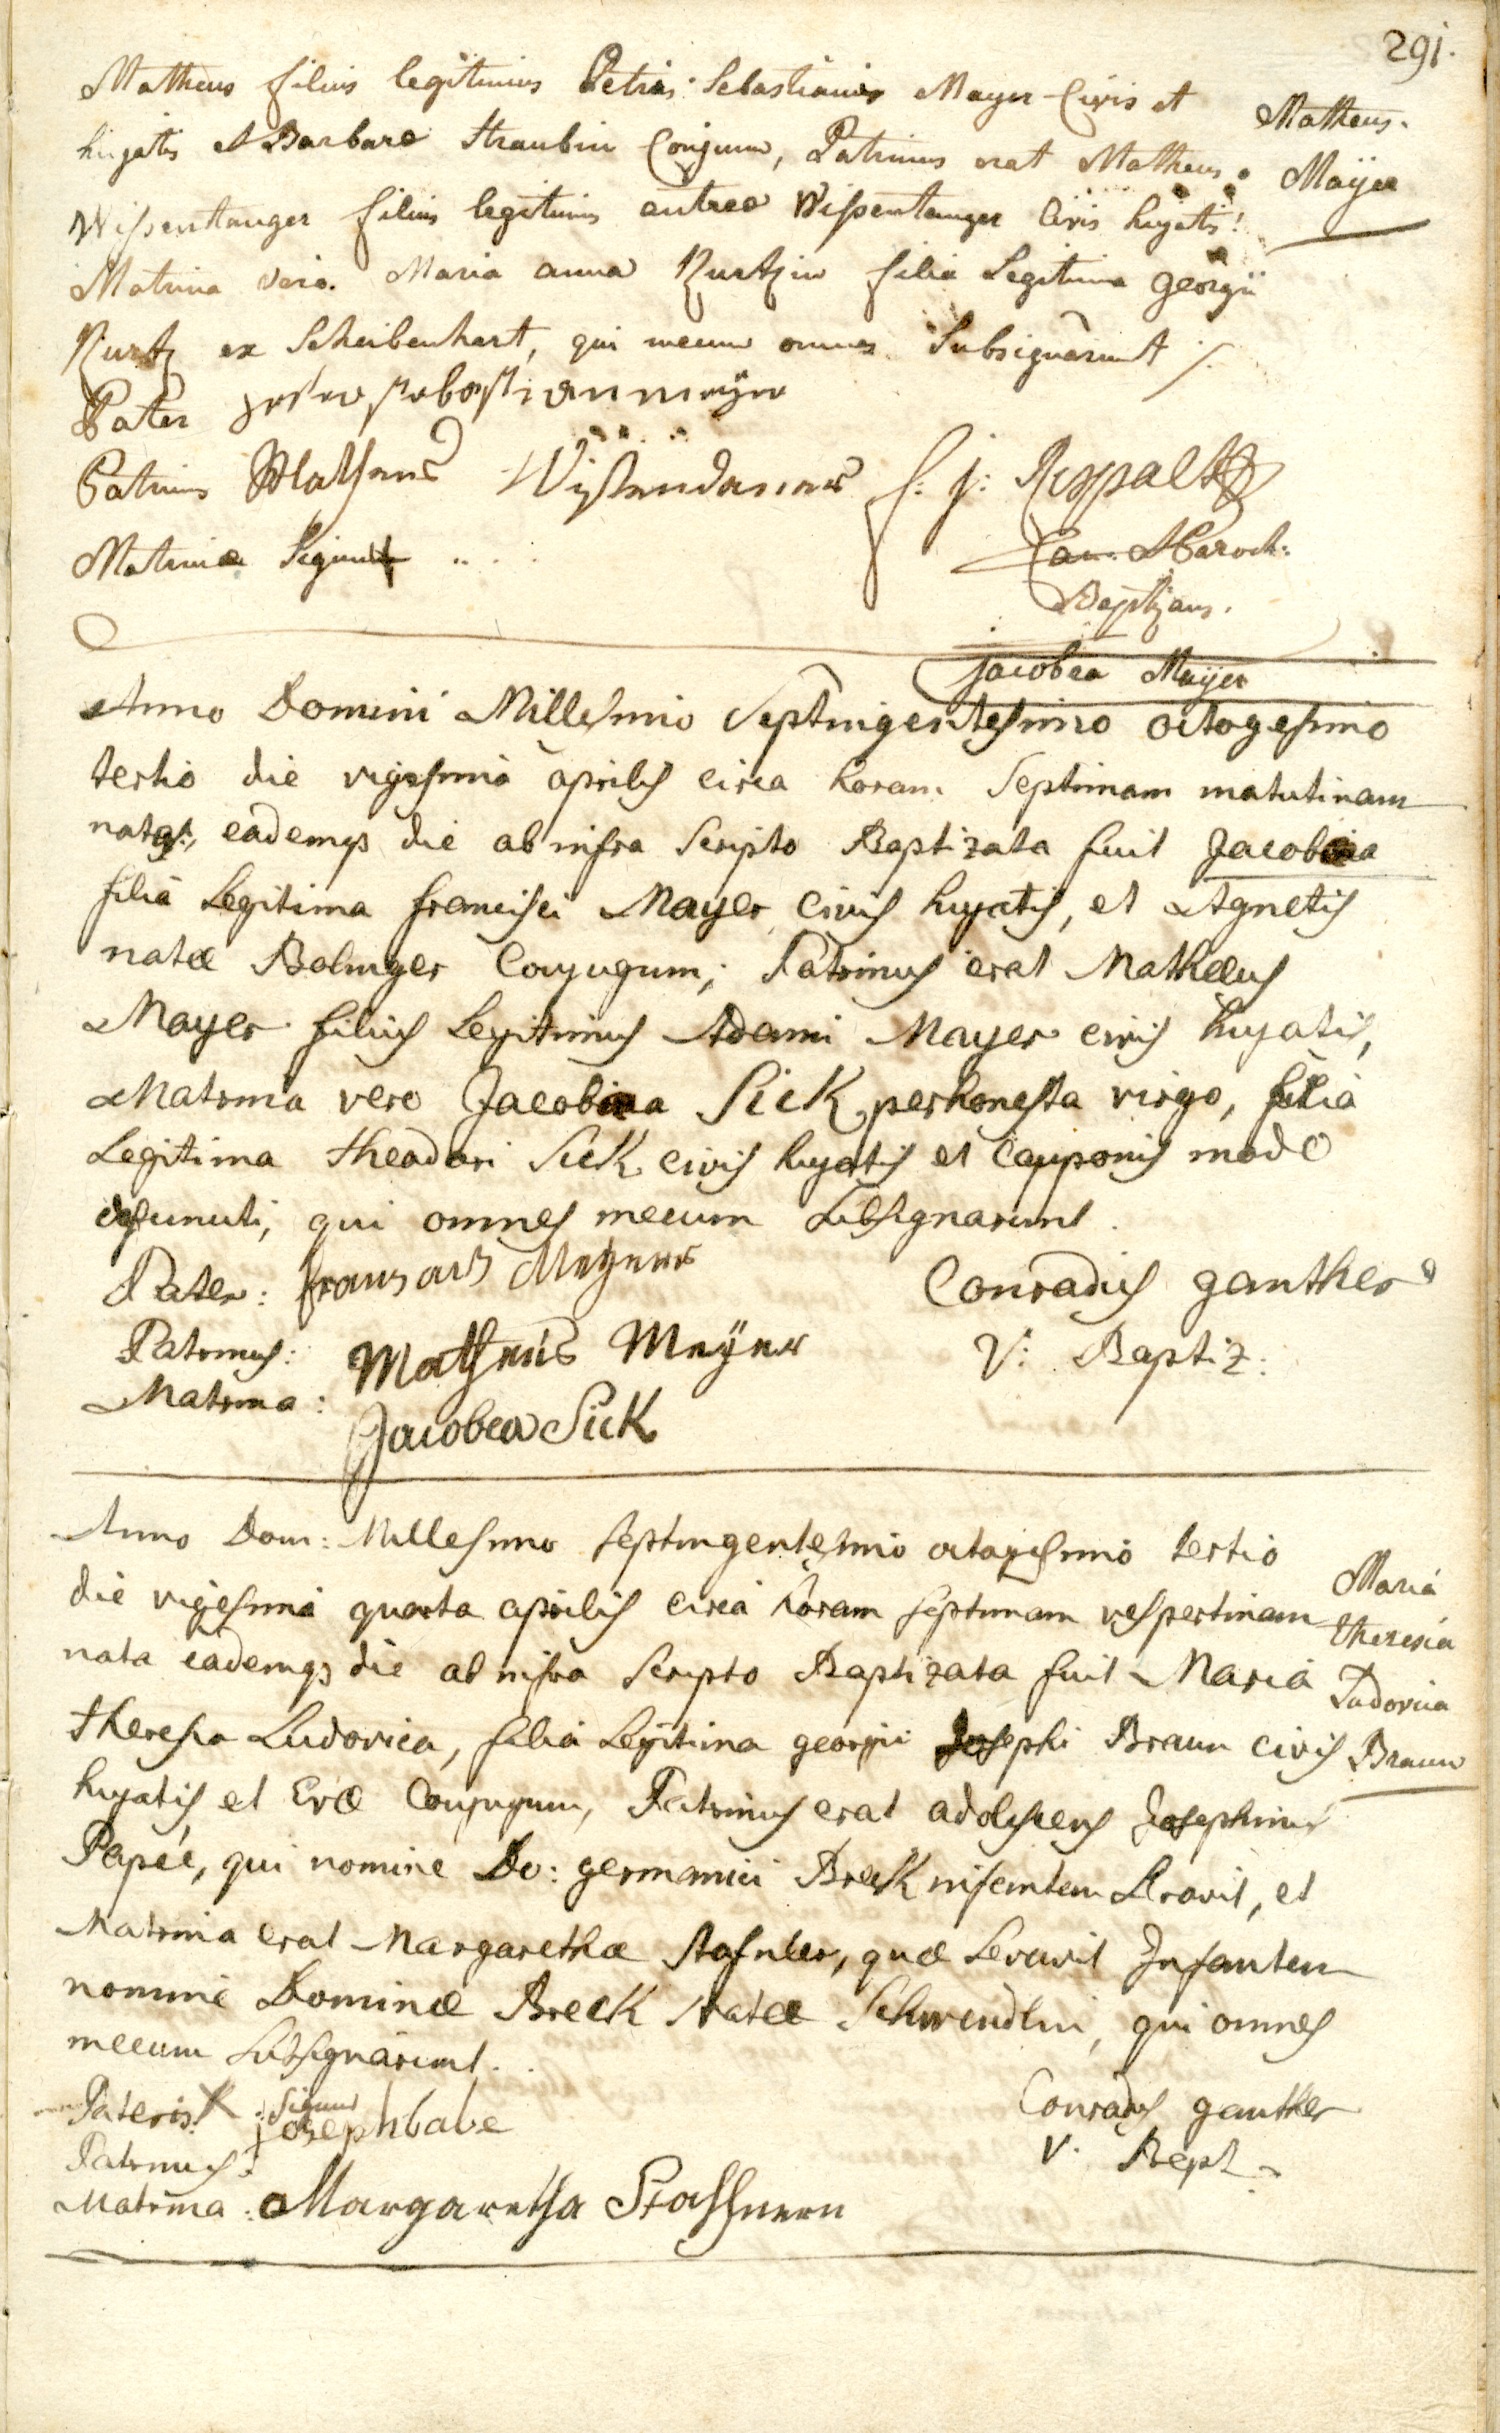 291.
Matheus filius legitimus Petri Sebastiani Mayer Civis et
hujatis et Barbara Straubin Conjugum, Patrinus erat Matheus
Matheus.
Mayer
Wissentanger filius legitimus andrea Wissentanger Civis hujatis!
Matrina vero. Maria anna Kurtzin filia Legitima georgii
Kurtz ex Scheibenhart, qui mecum omnes Subsignarunt /.
Pater peter sebastian mayer
Patrinus Matheus f: j: Ruppaltz
Matrina Signum Can. Paroch:
Baptizans.
Jacobea Mayer
Anno Domini Millesimo Septingentesimo octogesimo
tertio die vigesima aprilis circa horam Septimam matutinam
nata, eademq3 die ab infra Scripto Baptizata fuit Jacobina
filia Legitima francisci Mayer civis hujatis, et Agnetis
natæ Bolinger Conjugum; Patrinus erat Mathæus
Mayer filius Legitimus Adami Mayer civis hujatis,
Matrina vero Jacobina Sick perhonesta virgo, filia
Legitima theadori Sick civis hujatis et Cauponis modo
defuncti, qui omnes mecum subsignarunt.
Pater: Mayer Conradus ganther
Patrinus: Matheus Meÿer V: Baptiz:
Matrina: Jacobea Sick
Anno Dom: Millesimo septingentesimo octogesimo tertio
die vigesima quarta aprilis circa horam septimam vespertinam
nata eademq3 die ab infra Scripto Baptizata fuit Maria
Maria
Theresia
Ludovica
Braun
theresia Ludovica, filia Legitima georgii Josephi Braun civis
hujatis, et Evæ Conjugum, Patrinus erat adolescens Josephinus
Papée, qui nomine Do: germanici Breck infantem Levavit, et
Matrina erat Margaretha Stafner, quæ Levavit Infantem
nomine Dominæ Breck natæ Schwendlin, qui omnes
mecum subsignarunt..
Pateris X Signum Conradus ganther
Patrinus: josephbabe V. Bapt.
Matrina: Margaretha Staffnern